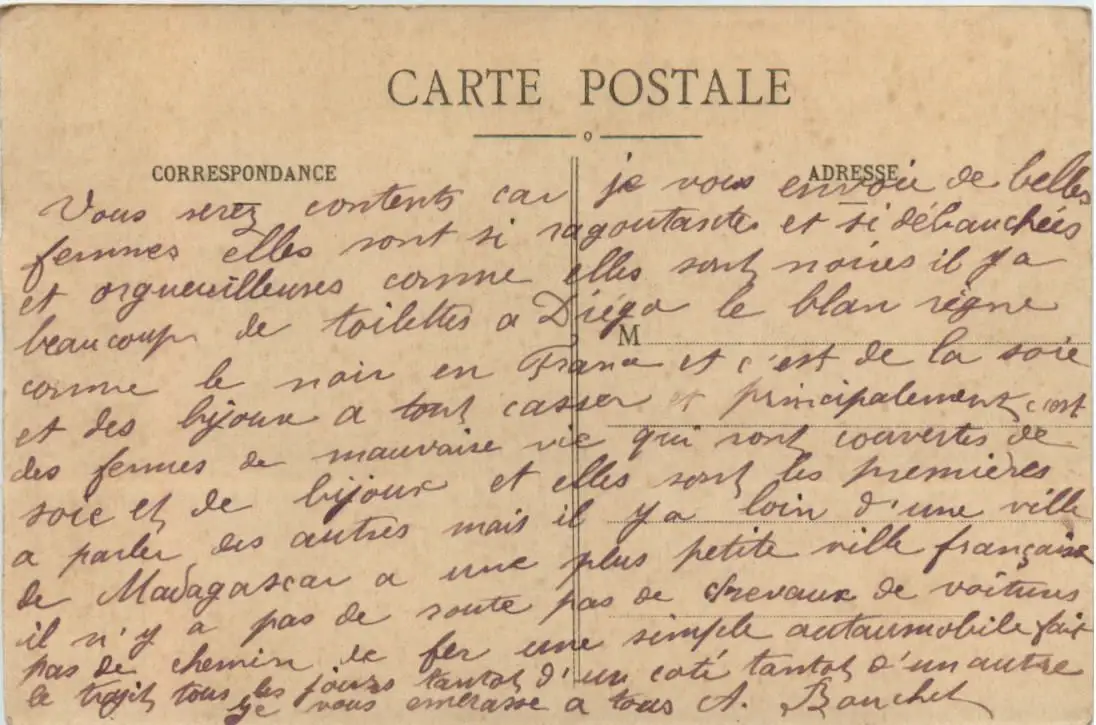 CARTE POSTALE
CORRESPONDANCE
ADRESSE
Vous serez contents car je vous envoie de belles
femmes elles sont si ragoutantes et si débauchées
et orgueuilleuses comme elles sont noires il y a
beaucoup de toilettes a Diégo le blan règne
M
comme le noir en France et c'est de la soie
et des bijoux a tout casser et principalement c'est
des femmes de mauvaise vie qui sont couvertes de
soie et de bijoux et elles sont les premières
a parler des autres mais il y a loin d'une ville
de Madagascar a une plus petite ville française
il n'y a pas de route pas de chevaux de voitures
pas de chemin de fer une simple autaumobile fait
le trajit tous les jours tantot d'un coté tantot d'un autre
je vous embrasse a tous A. Bouchet